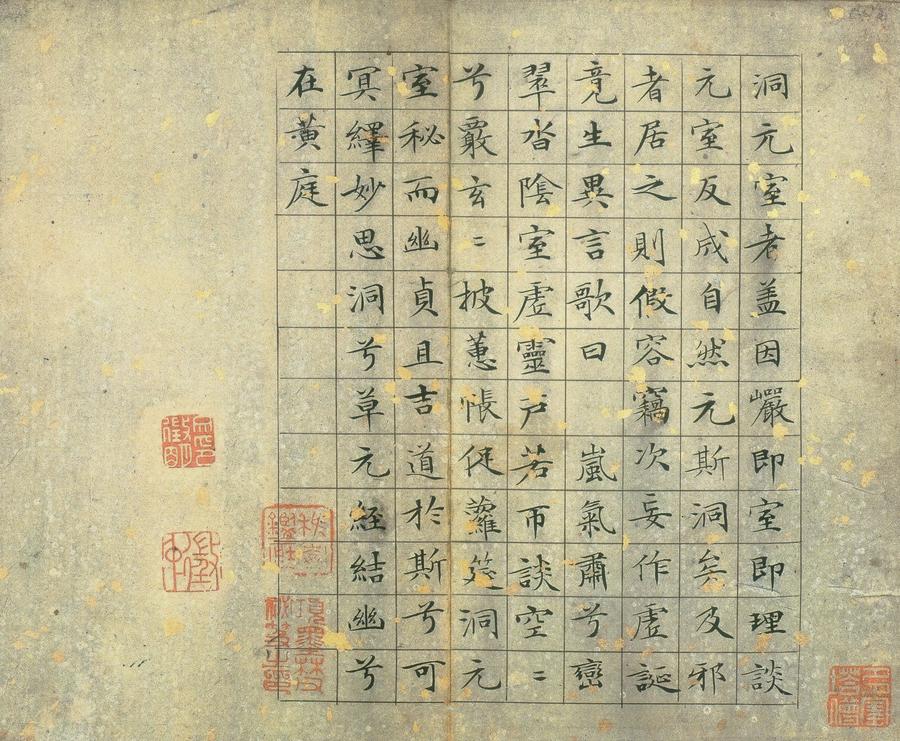 洞元室者盖因巖即室即理談
元室反成自然元斯洞矣及邪
者居之則假容竊次妄作虛誕
竟生異言歌曰 嵐氣肅兮巒
翠沓陰室虛靈戶芳帀談空〻
兮覈玄〻披蕙帳促蘿筵洞元
室秘而幽貞且吉道於斯兮可
冥繹妙思洞兮草元經結幽兮
在黃庭
項墨林父祕笈之印